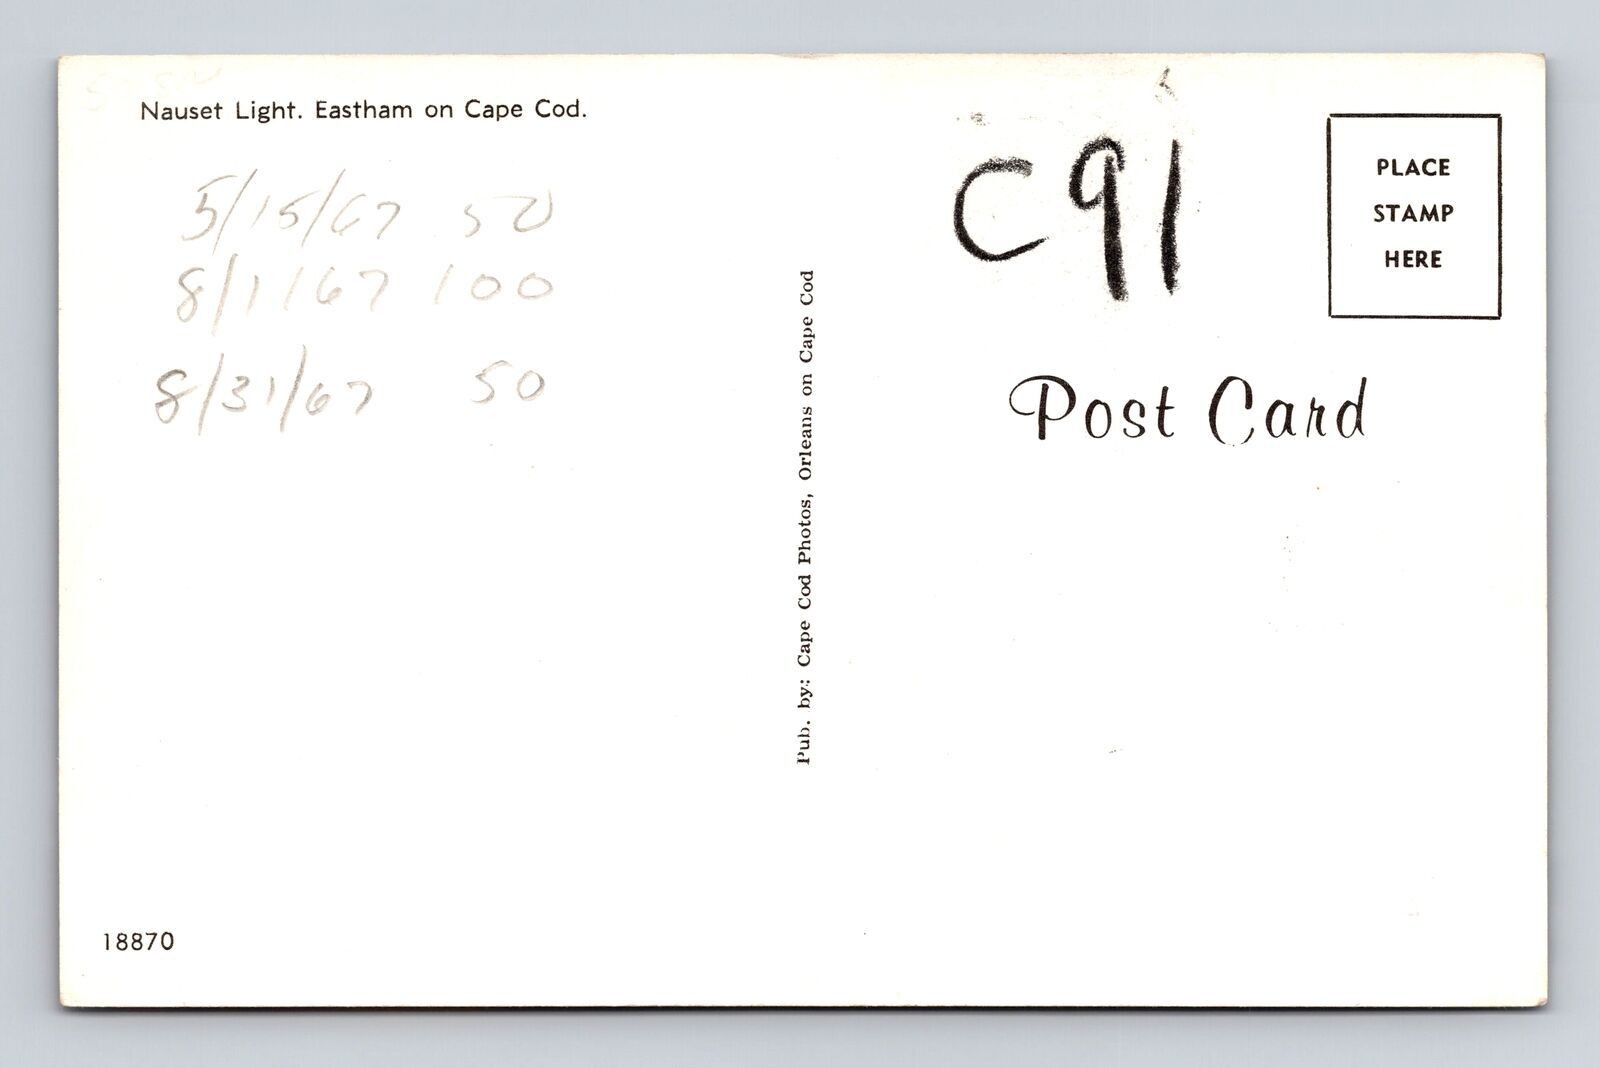 Nauset Light. Eastham on Cape Cod.
5/15/67 50
8/1/67 100
8/31/67 50
18870
Pub. by: Cape Cod Photos, Orleans on Cape Cod
C91
PLACE
STAMP
HERE
Post Card